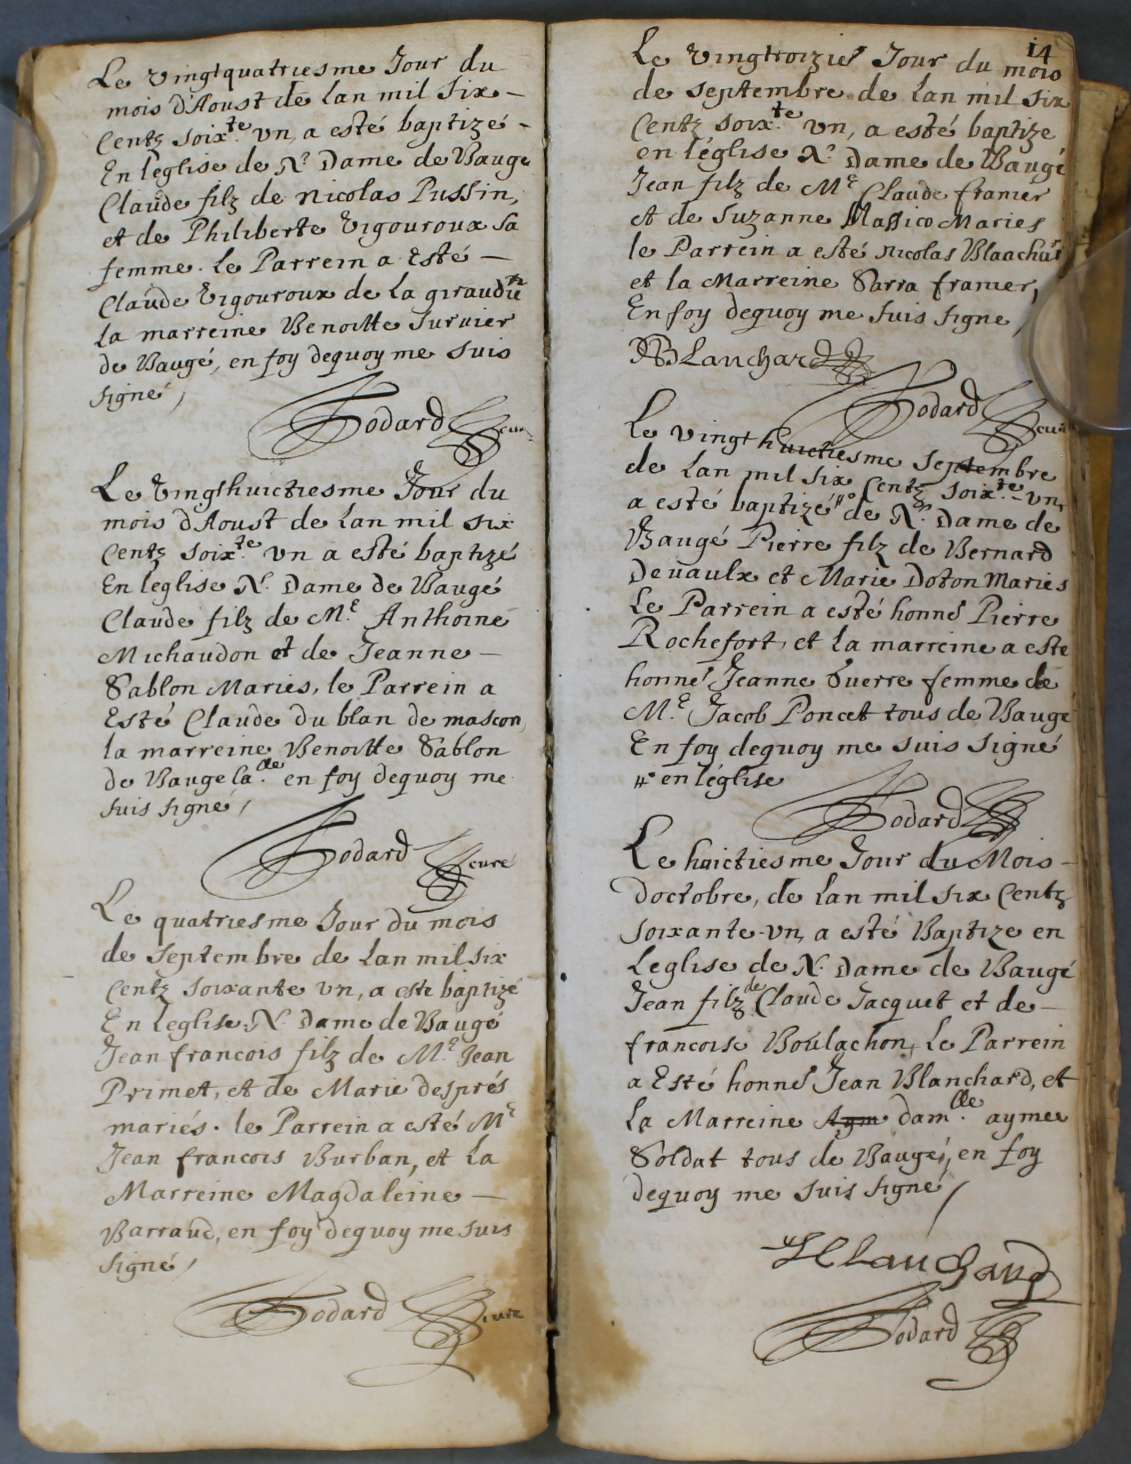 Le vingtquatriesme Jour du
mois d'Aoust de Lan mil six
Centz soixte. vn, a esté baptizé
En l'eglise de Ne. Dame de Baugé
Claude filz de nicolas Pussin,
et de Philiberte Vigouroux sa
femme. Le Parrein a Esté
Claude Vigouroux de La
La marreine Benoitte
de Baugé, en foy dequoy me suis
signé,
Hodard cure
Le Vingthuictiesme Jour du
mois d'Aoust de Lan mil six
Centz soixte. vn a esté baptizé
En leglise N. Dame de Baugé
Claude filz de Me. Anthoine
Michaudon et de Jeanne
Sablon Maries, le Parrein a
Esté Claude du blan de mascon,
la marreine Benoitte Sablon
de Bauge la.de en foy dequoy me
suis signé,
Hodard cure
Le quatriesme Jour du mois
de septembre de Lan mil six
Centz soixante vn, a este baptizé
En Leglise N. Dame de Baugé
Jean francois filz de Me. Jean
Primet, et de Marie després
mariés. le Parrein a esté Me
Jean francois Burban, et La
Marreine Magdaleine
Barraud, en foy dequoy me suis
signé,
Hodard cure
14
Le vingtroizie Jour du mois
de septembre de Lan mil six
Centz soix.te vn, a esté baptize
en l'église Ne. Dame de Baugé
Jean filz de Me Claude framer
et de Suzanne Massico Maries
le Parrein a esté nicolas
et la Marreine Sarra framer,
En foy dequoy me suis signe,
NBLanchard
Hodard cure
Le vingt huictiesme septembre
de Lan mil six Centz soix.te vn,
a esté baptizé # de Ne. Dame de
Baugé Pierre filz de Bernard
Devaulx et Marie Doton maries
Le Parrein a esté honne Pierre
Rochefort, et La marreine a este
honne Jeanne Guerre femme de
Me. Jacob Poncet tous de Baugé
En foy dequoy me suis signé
# en l'église
Hodard
Le huictiesme Jour du Mois
doctobre, de Lan mil six Centz
soixante-vn, a esté Baptize en
Leglise de N. Dame de Baugé
Jean filz de Claude Jacquet et de
francoise Boulachon, Le Parrein
a Esté honne Jean Blanchard, et
La Marreine Aym dam.lle aymee
Soldat tous de Baugé, en foy
dequoy me suis signé,
JBlanchard
Hodard